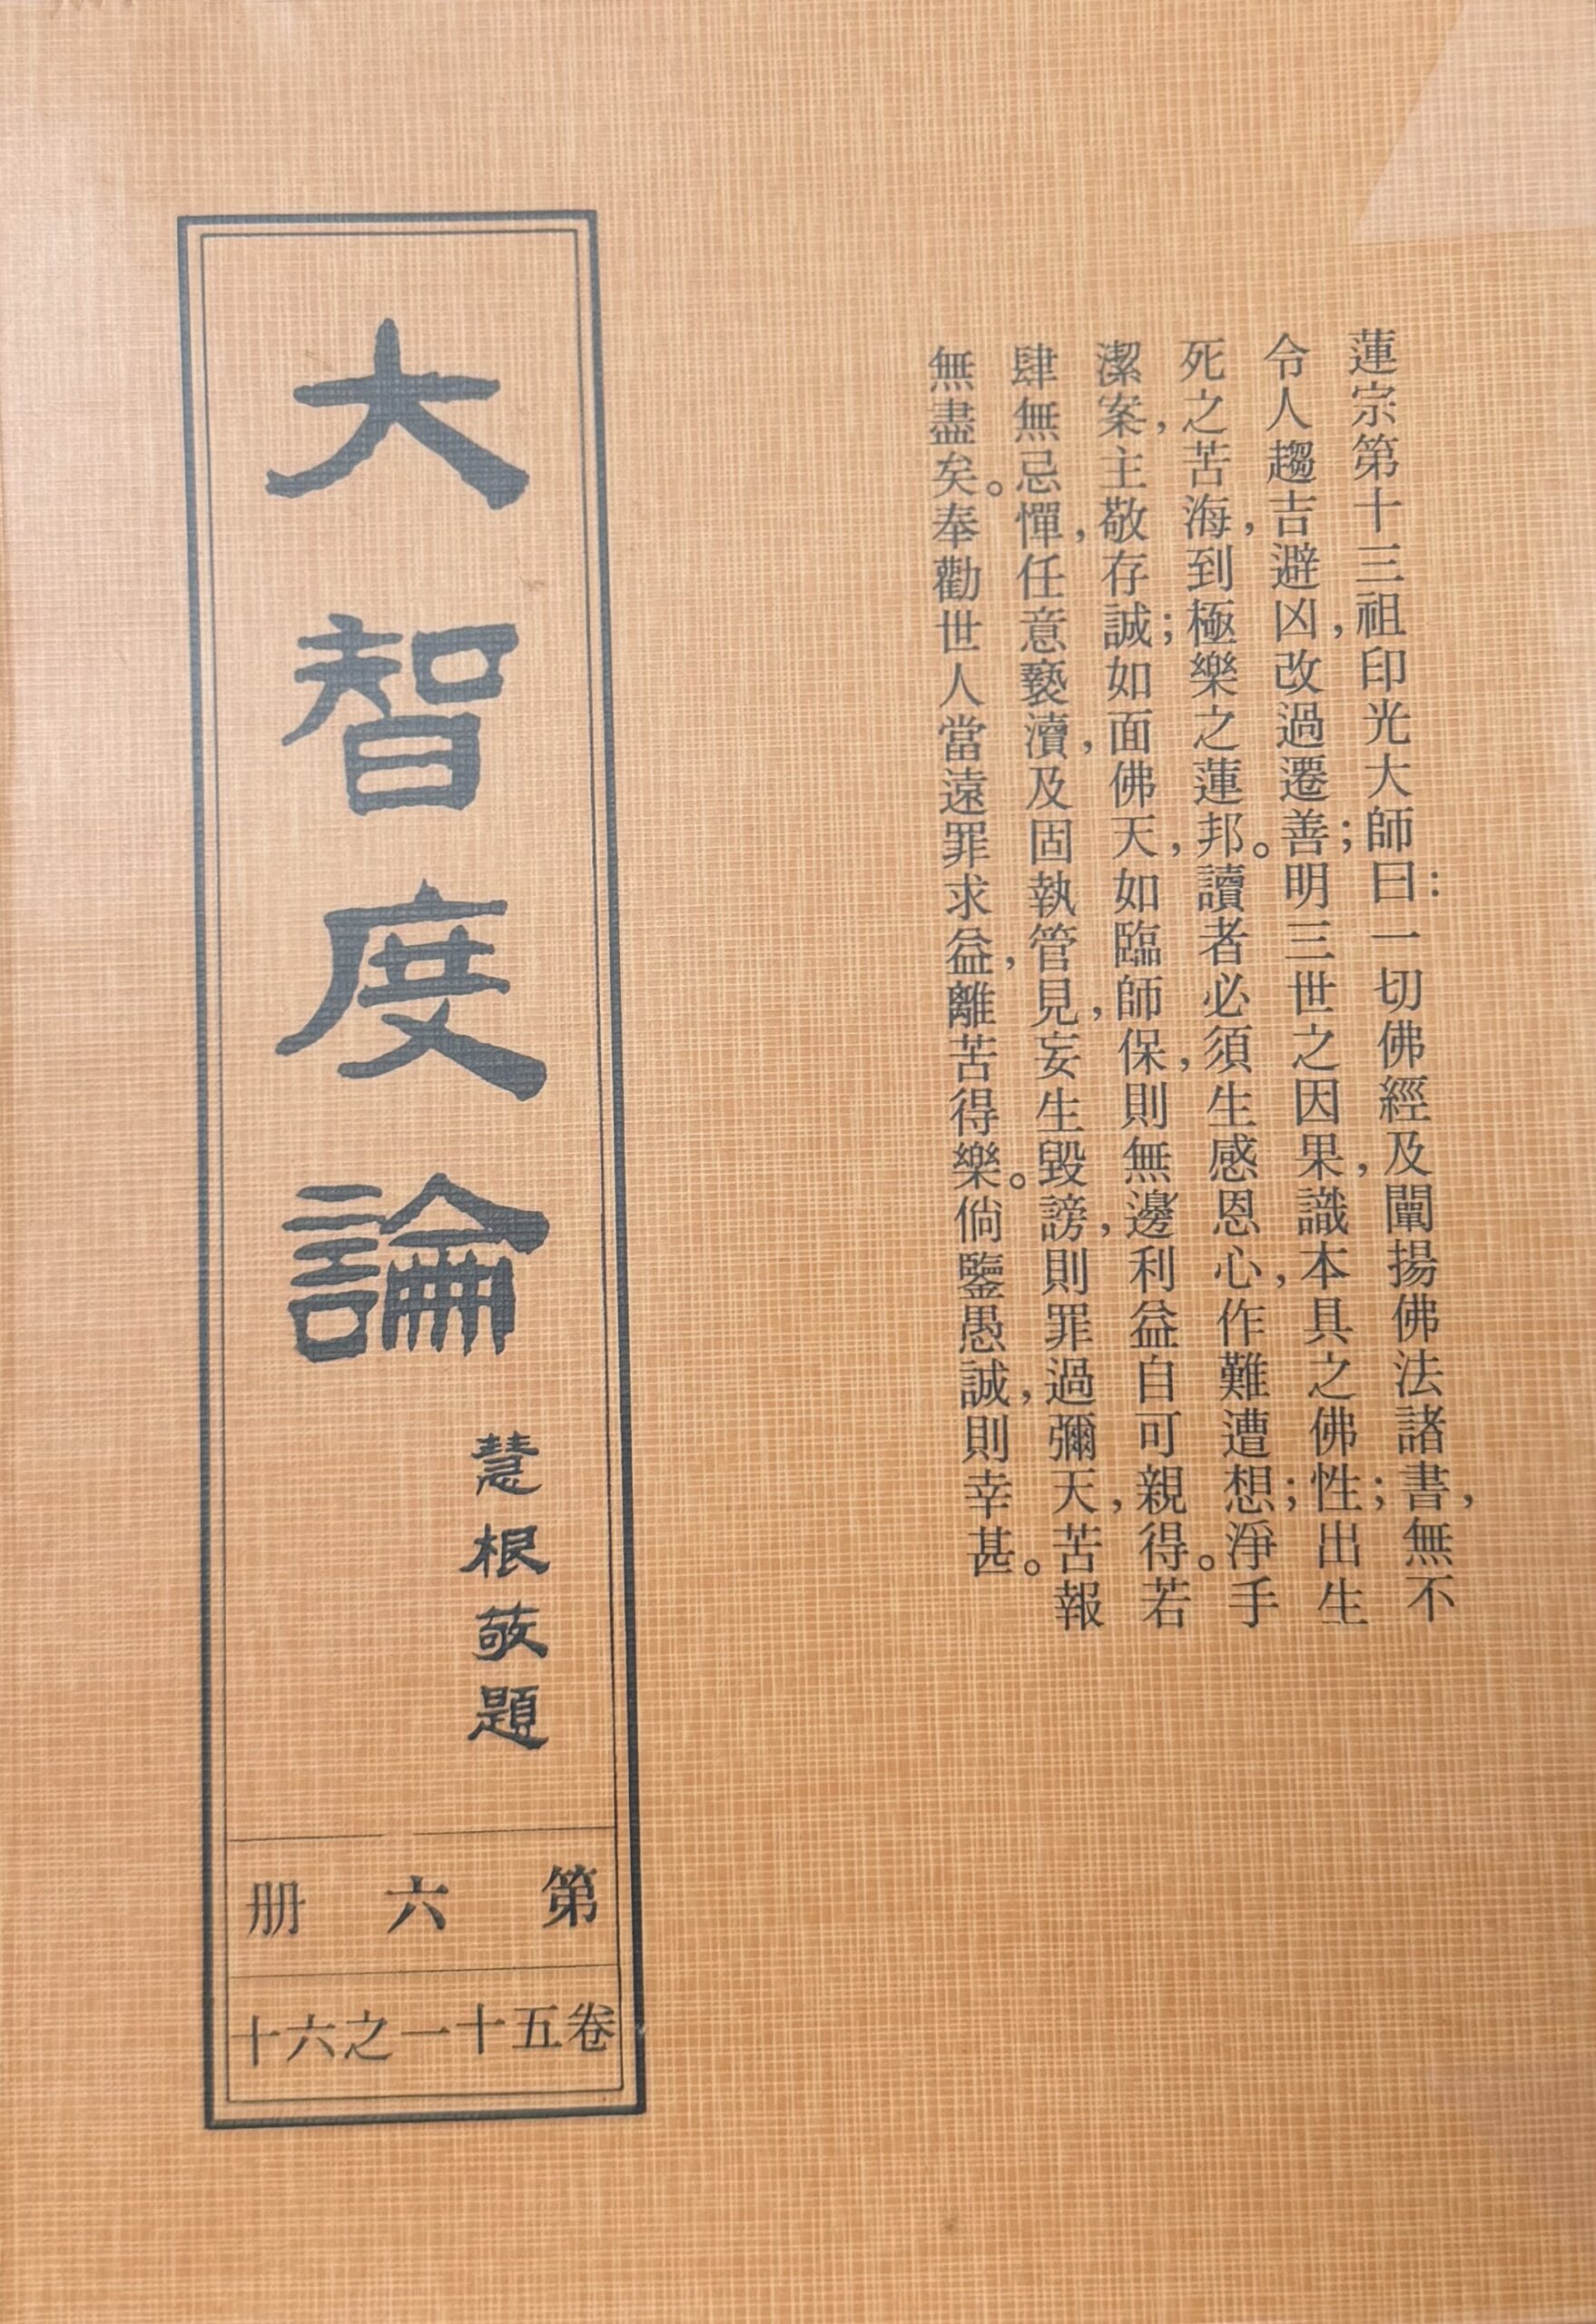 蓮宗第十三祖印光大師曰：一切佛經及闡揚佛法諸書，無不
令人趨吉避凶，改過遷善；明三世之因果，識本具之佛性；出生
死之苦海，到極樂之蓮邦。讀者必須生感恩心，作難遭想；淨手
潔案，主敬存誠；如面佛天，如臨師保，則無邊利益自可親得。若
肆無忌憚，任意褻瀆，及固執管見，妄生毀謗，則罪過彌天，苦報
無盡矣。奉勸世人當遠罪求益，離苦得樂。倘鑒愚誠，則幸甚。
大智度論
慧根敬題
第六册
卷五十一之六十